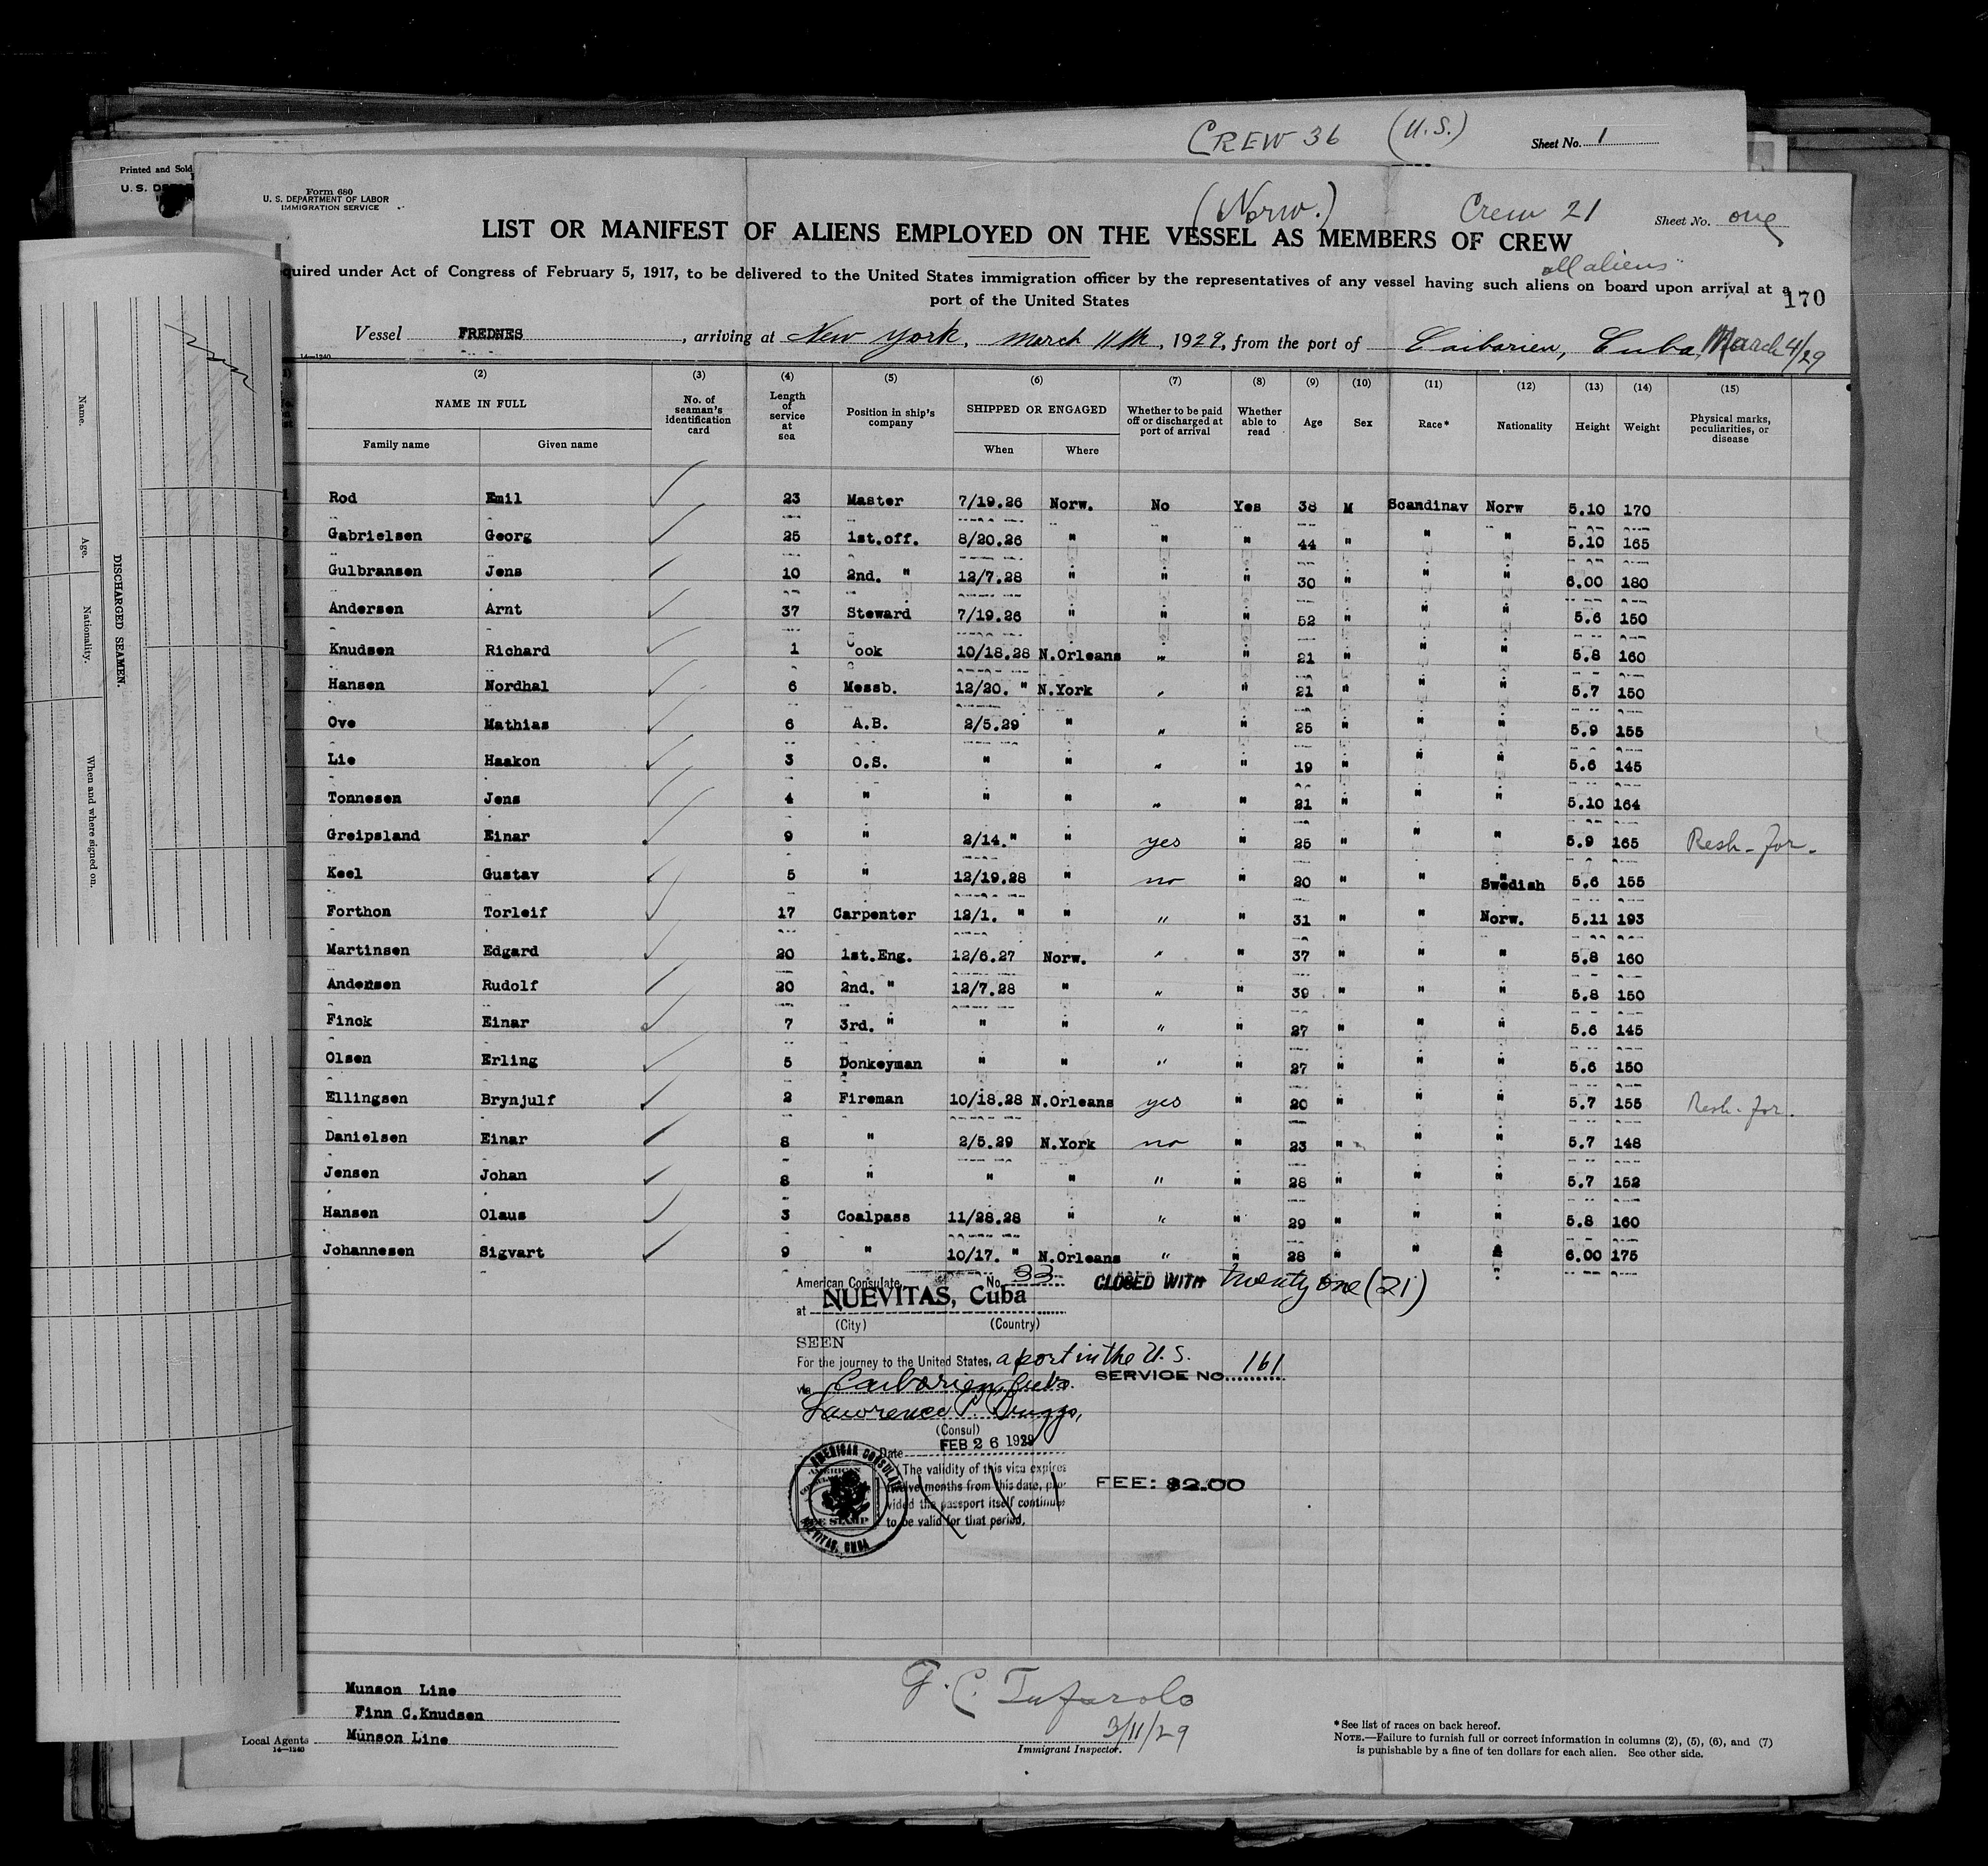 CREW 36 (U.S.) Sheet No. 1
Printed and Sold
U. S.
Form 680
U. S. DEPARTMENT OF LABOR
IMMIGRATION SERVICE
(Norw.) Crew 21 Sheet No. one
LIST OR MANIFEST OF ALIENS EMPLOYED ON THE VESSEL AS MEMBERS OF CREW
all aliens
quired under Act of Congress of February 5, 1917, to be delivered to the United States immigration officer by the representatives of any vessel having such aliens on board upon arrival at a
port of the United States
170
Vessel FREDNES, arriving at New York, March 11th, 1929, from the port of Caibarien, Cuba, March 4/29
14—1240
(2) (3) (4) (5) (6) (7) (8) (9) (10) (11) (12) (13) (14) (15)
NAME IN FULL No. of seaman's identification card Length of service at sea Position in ship's company SHIPPED OR ENGAGED Whether to be paid off or discharged at port of arrival Whether able to read Age Sex Race* Nationality Height Weight Physical marks, peculiarities, or disease
Family name Given name When Where
1 Rod Emil 23 Master 7/19.26 Norw. No Yes 38 M Scandinav Norw 5.10 170
2 Gabrielsen Georg 25 1st.off. 8/20.26 " " " 44 " " " 5.10 165
3 Gulbransen Jens 10 2nd. " 12/7.28 " " " 30 " " " 6.00 180
Andersen Arnt 37 Steward 7/19.26 " " " 52 " " " 5.6 150
Knudsen Richard 1 Cook 10/18.28 N.Orleans " " 21 " " " 5.8 160
Hansen Nordhal 6 Messb. 12/20. " N.York " " 21 " " " 5.7 150
Ove Mathias 6 A.B. 2/5.29 " " " 25 " " " 5.9 155
Lie Haakon 3 O.S. " " " " 19 " " " 5.6 145
Tonnesen Jens 4 " " " " " 21 " " " 5.10 164
Greipsland Einar 9 " 2/14." " yes " 25 " " " 5.9 165 Resh-for-
Keel Gustav 5 " 12/19.28 " no " 20 " " Swedish 5.6 155
Forthon Torleif 17 Carpenter 12/1. " " " " 31 " " Norw. 5.11 193
Martinsen Edgard 20 1st.Eng. 12/6.27 Norw. " " 37 " " " 5.8 160
Andersen Rudolf 20 2nd. " 12/7.28 " " " 39 " " " 5.8 150
Finck Einar 7 3rd. " " " " " 27 " " " 5.6 145
Olsen Erling 5 Donkeyman " " " " 27 " " " 5.6 150
Ellingsen Brynjulf 2 Fireman 10/18.28 N.Orleans yes " 20 " " " 5.7 155 Resh-for.
Danielsen Einar 8 " 2/5.29 N.York no " 23 " " " 5.7 148
Jensen Johan 8 " " " " " 28 " " " 5.7 152
Hansen Olaus 3 Coalpass 11/28.28 " " " 29 " " " 5.8 160
Johannesen Sigvart 9 " 10/17. " N.Orleans " " 28 " " " 6.00 175
American Consulate No. 33 CLOSED WITH twenty one (21)
at NUEVITAS, Cuba
(City) (Country)
SEEN
For the journey to the United States, a port in the U.S.
via Caibarien, Cuba. SERVICE NO. 161
Lawrence P. Briggs,
(Consul)
Date FEB 26 1929
The validity of this visa expires
twelve months from this date, pro-
vided the passport itself continues
to be valid for that period.
FEE: $2.00
AMERICAN CONSULATE
NUEVITAS, CUBA
FEE STAMP
Munson Line
Finn C.Knudsen
Local Agents Munson Line
14—1240
G. C. Tufarolo
3/11/29
Immigrant Inspector.
*See list of races on back hereof.
NOTE.—Failure to furnish full or correct information in columns (2), (5), (6), and (7)
is punishable by a fine of ten dollars for each alien. See other side.
DISCHARGED SEAMEN.
Name.
Age.
Nationality.
When and where signed on.